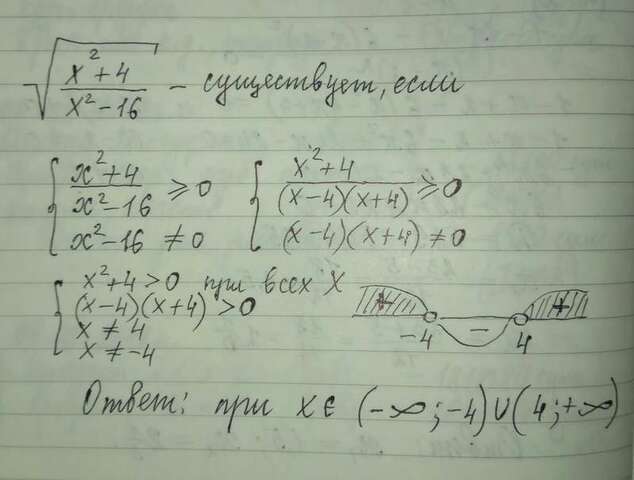 √((x²+4)/(x²-16)) - существует, если
{ (x²+4)/(x²-16) ≥ 0 { (x²+4)/((x-4)(x+4)) ≥ 0
x²-16 ≠ 0 (x-4)(x+4) ≠ 0
{ x²+4>0 при всех X
(x-4)(x+4) > 0
x ≠ 4
x ≠ -4
+ - +
-4 4
Ответ: при x∈ (-∞;-4)∪(4;+∞)